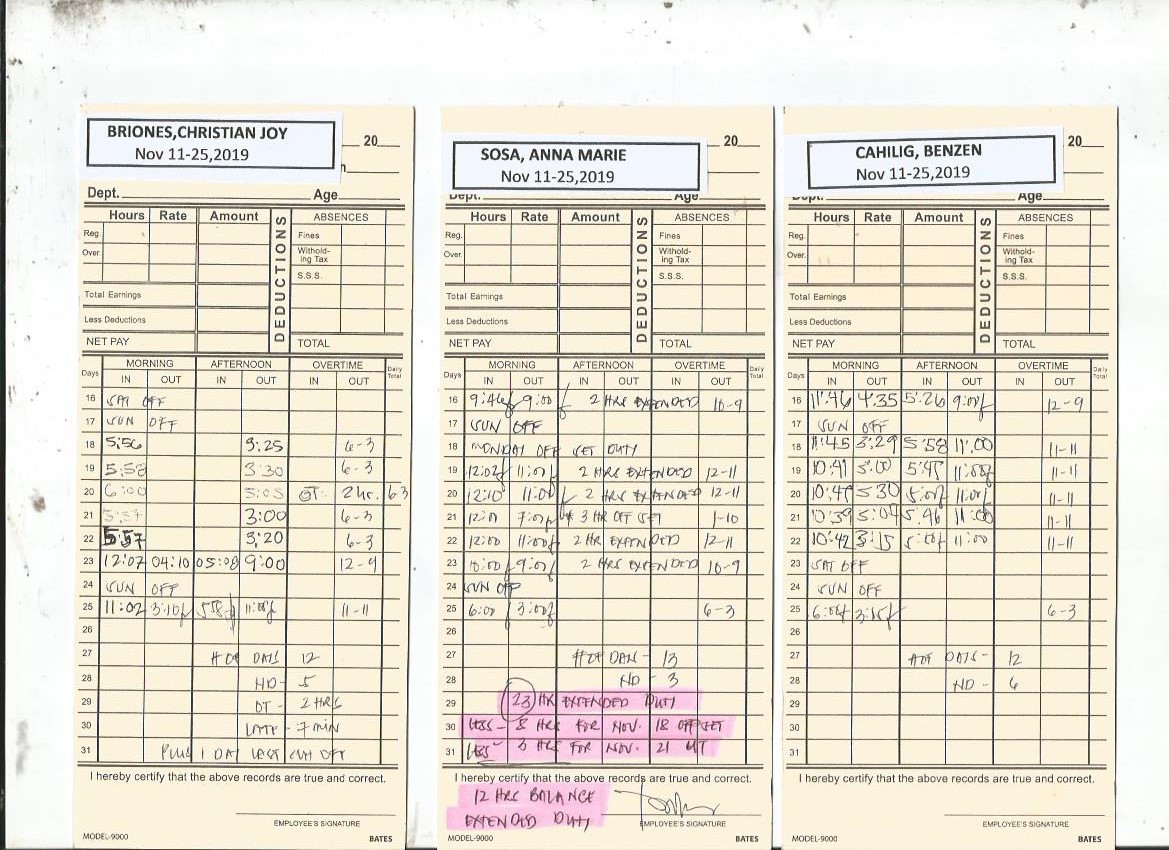 BRIONES,CHRISTIAN JOY
Nov 11-25,2019
20
Dept. Age
Hours Rate Amount DEDUCTIONS ABSENCES
Reg. Fines
Over. Withholding Tax
S.S.S.
Total Earnings
Less Deductions
NET PAY TOTAL
Days MORNING AFTERNOON OVERTIME Daily Total
IN OUT IN OUT IN OUT
16 SAT OFF
17 SUN OFF
18 5:56 3:25 6-3
19 5:58 3:30 6-3
20 6:00 5:05 OT: 2 hr. 63
21 5:57 3:00 6-3
22 5:57 3:20 6-3
23 12:07 04:10 05:08 9:00 12-9
24 SUN OFF
25 11:02 3:10 558 11:00 11-11
26
27 # OF DAYS 12
28 ND- 5
29 OT - 2 HRS
30 LATE - 7 MIN
31 PLUS 1 DAY LAST CUT OFF
I hereby certify that the above records are true and correct.
EMPLOYEE'S SIGNATURE
MODEL-9000 BATES
SOSA, ANNA MARIE
Nov 11-25,2019
20
Dept. Age
Hours Rate Amount DEDUCTIONS ABSENCES
Reg. Fines
Over. Withholding Tax
S.S.S.
Total Earnings
Less Deductions
NET PAY TOTAL
Days MORNING AFTERNOON OVERTIME Daily Total
IN OUT IN OUT IN OUT
16 9:46 9:00 2 HRS EXTENDED 10-9
17 SUN OFF
18 MONDAY OFF SET DUTY
19 12:02 11:00 2 HRS EXTENDED 12-11
20 12:10 11:00 2 HRS EXTENDED 12-11
21 7:00 3 HR OFF SET 1-10
22 12:00 11:00 2 HR EXTENDED 12-11
23 10:00 9:00 2 HRS EXTENDED 10-9
24 SUN OFF
25 6:00 3:00 6-3
26
27 # OF DAYS - 13
28 ND - 3
29 23 HR EXTENDED DUTY
30 LESS - 8 HRS FOR NOV. 18 OFFSET
31 LESS - 3 HRS FOR NOV. 21 UT
I hereby certify that the above records are true and correct.
12 HRS BALANCE
EXTENDED DUTY
EMPLOYEE'S SIGNATURE
MODEL-9000 BATES
CAHILIG, BENZEN
Nov 11-25,2019
20
Dept. Age
Hours Rate Amount DEDUCTIONS ABSENCES
Reg. Fines
Over. Withholding Tax
S.S.S.
Total Earnings
Less Deductions
NET PAY TOTAL
Days MORNING AFTERNOON OVERTIME Daily Total
IN OUT IN OUT IN OUT
16 11:46 4:35 5:26 9:00 12-9
17 SUN OFF
18 11:45 3:29 5:58 11:00 11-11
19 10:41 5:00 5:47 11:00 11-11
20 10:47 530 5:00 11:00 11-11
21 10:39 5:04 5:46 11:00 11-11
22 10:42 3:15 5:00 11:00 11-11
23 SAT OFF
24 SUN OFF
25 6:04 3:15 6-3
26
27 # OF DAYS - 12
28 ND - 6
29
30
31
I hereby certify that the above records are true and correct.
EMPLOYEE'S SIGNATURE
MODEL-9000 BATES